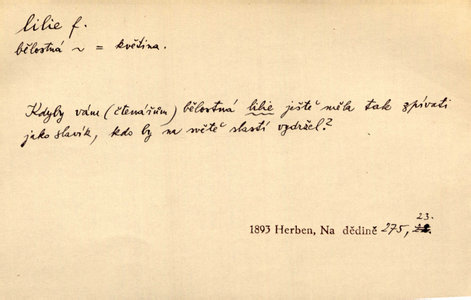 lilie f.
bělostná ~ = květina.
Kdyby vám (čtenářům) bělostná lilie ještě měla tak zpívati
jako slavík, kdo by na světě slastí vydržel?
23.
1893 Herben, Na dědině 275,